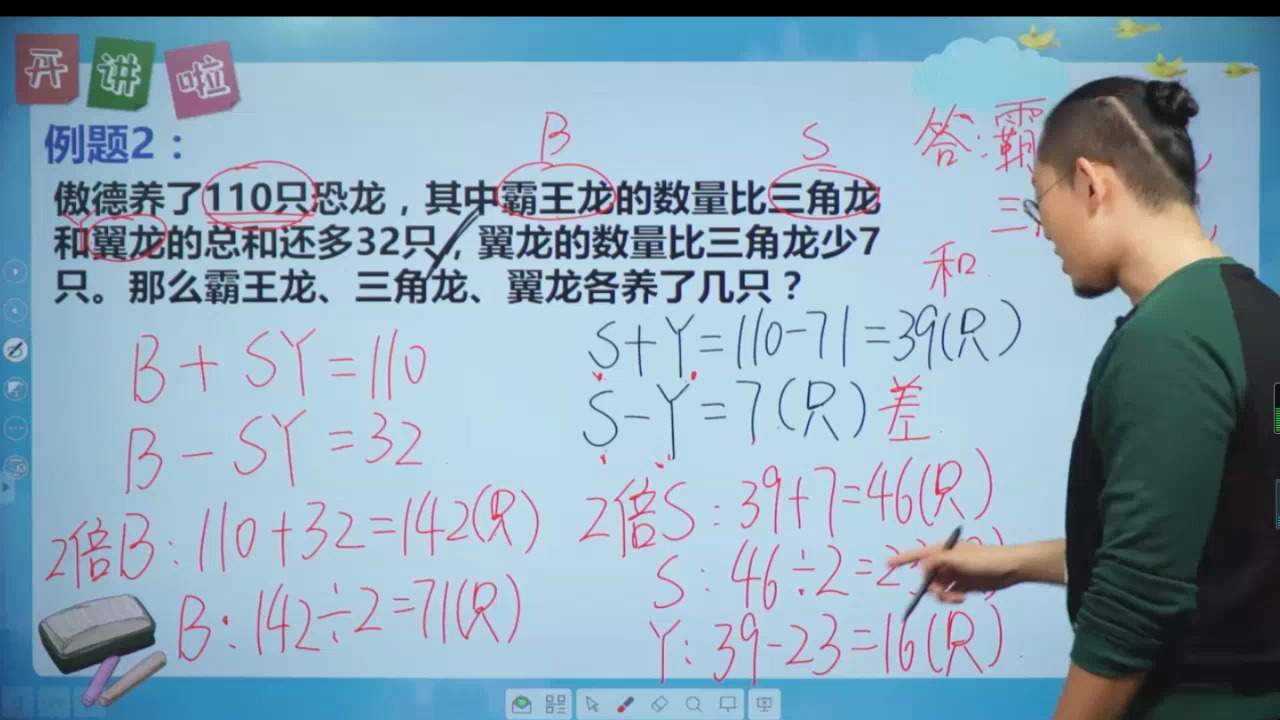 开讲啦
例题2：
B
S
答:霸
傲德养了110只恐龙，其中霸王龙的数量比三角龙
Y
和翼龙的总和还多32只，翼龙的数量比三角龙少7
和
只。那么霸王龙、三角龙、翼龙各养了几只？
B+SY=110
B-SY=32
2倍B:110+32=142(只)
B:142÷2=71(只)
S+Y=110-71=39(只)
S-Y=7(只)差
2倍S:39+7=46(只)
S:46÷2=2
Y:39-23=16(只)